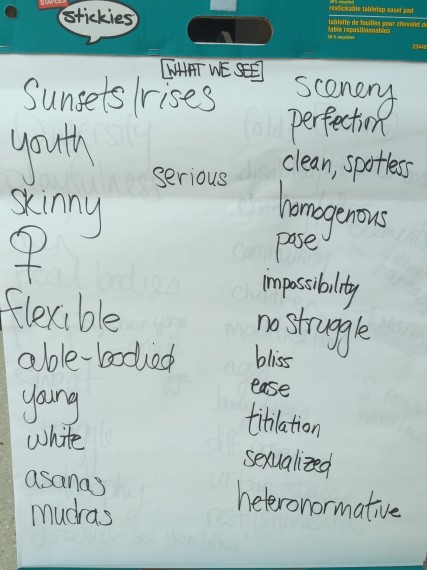 STAPLES
stickies
restickable tabletop easel pad
tablette de feuilles pour chevalet de
table repositionnables
WHAT WE SEE
Sunsets/rises
youth
serious
skinny
♀
flexible
able-bodied
young
white
asanas
mudras
scenery
perfection
clean, spotless
homogenous
pose
impossibility
no struggle
bliss
ease
titilation
sexualized
heteronormative